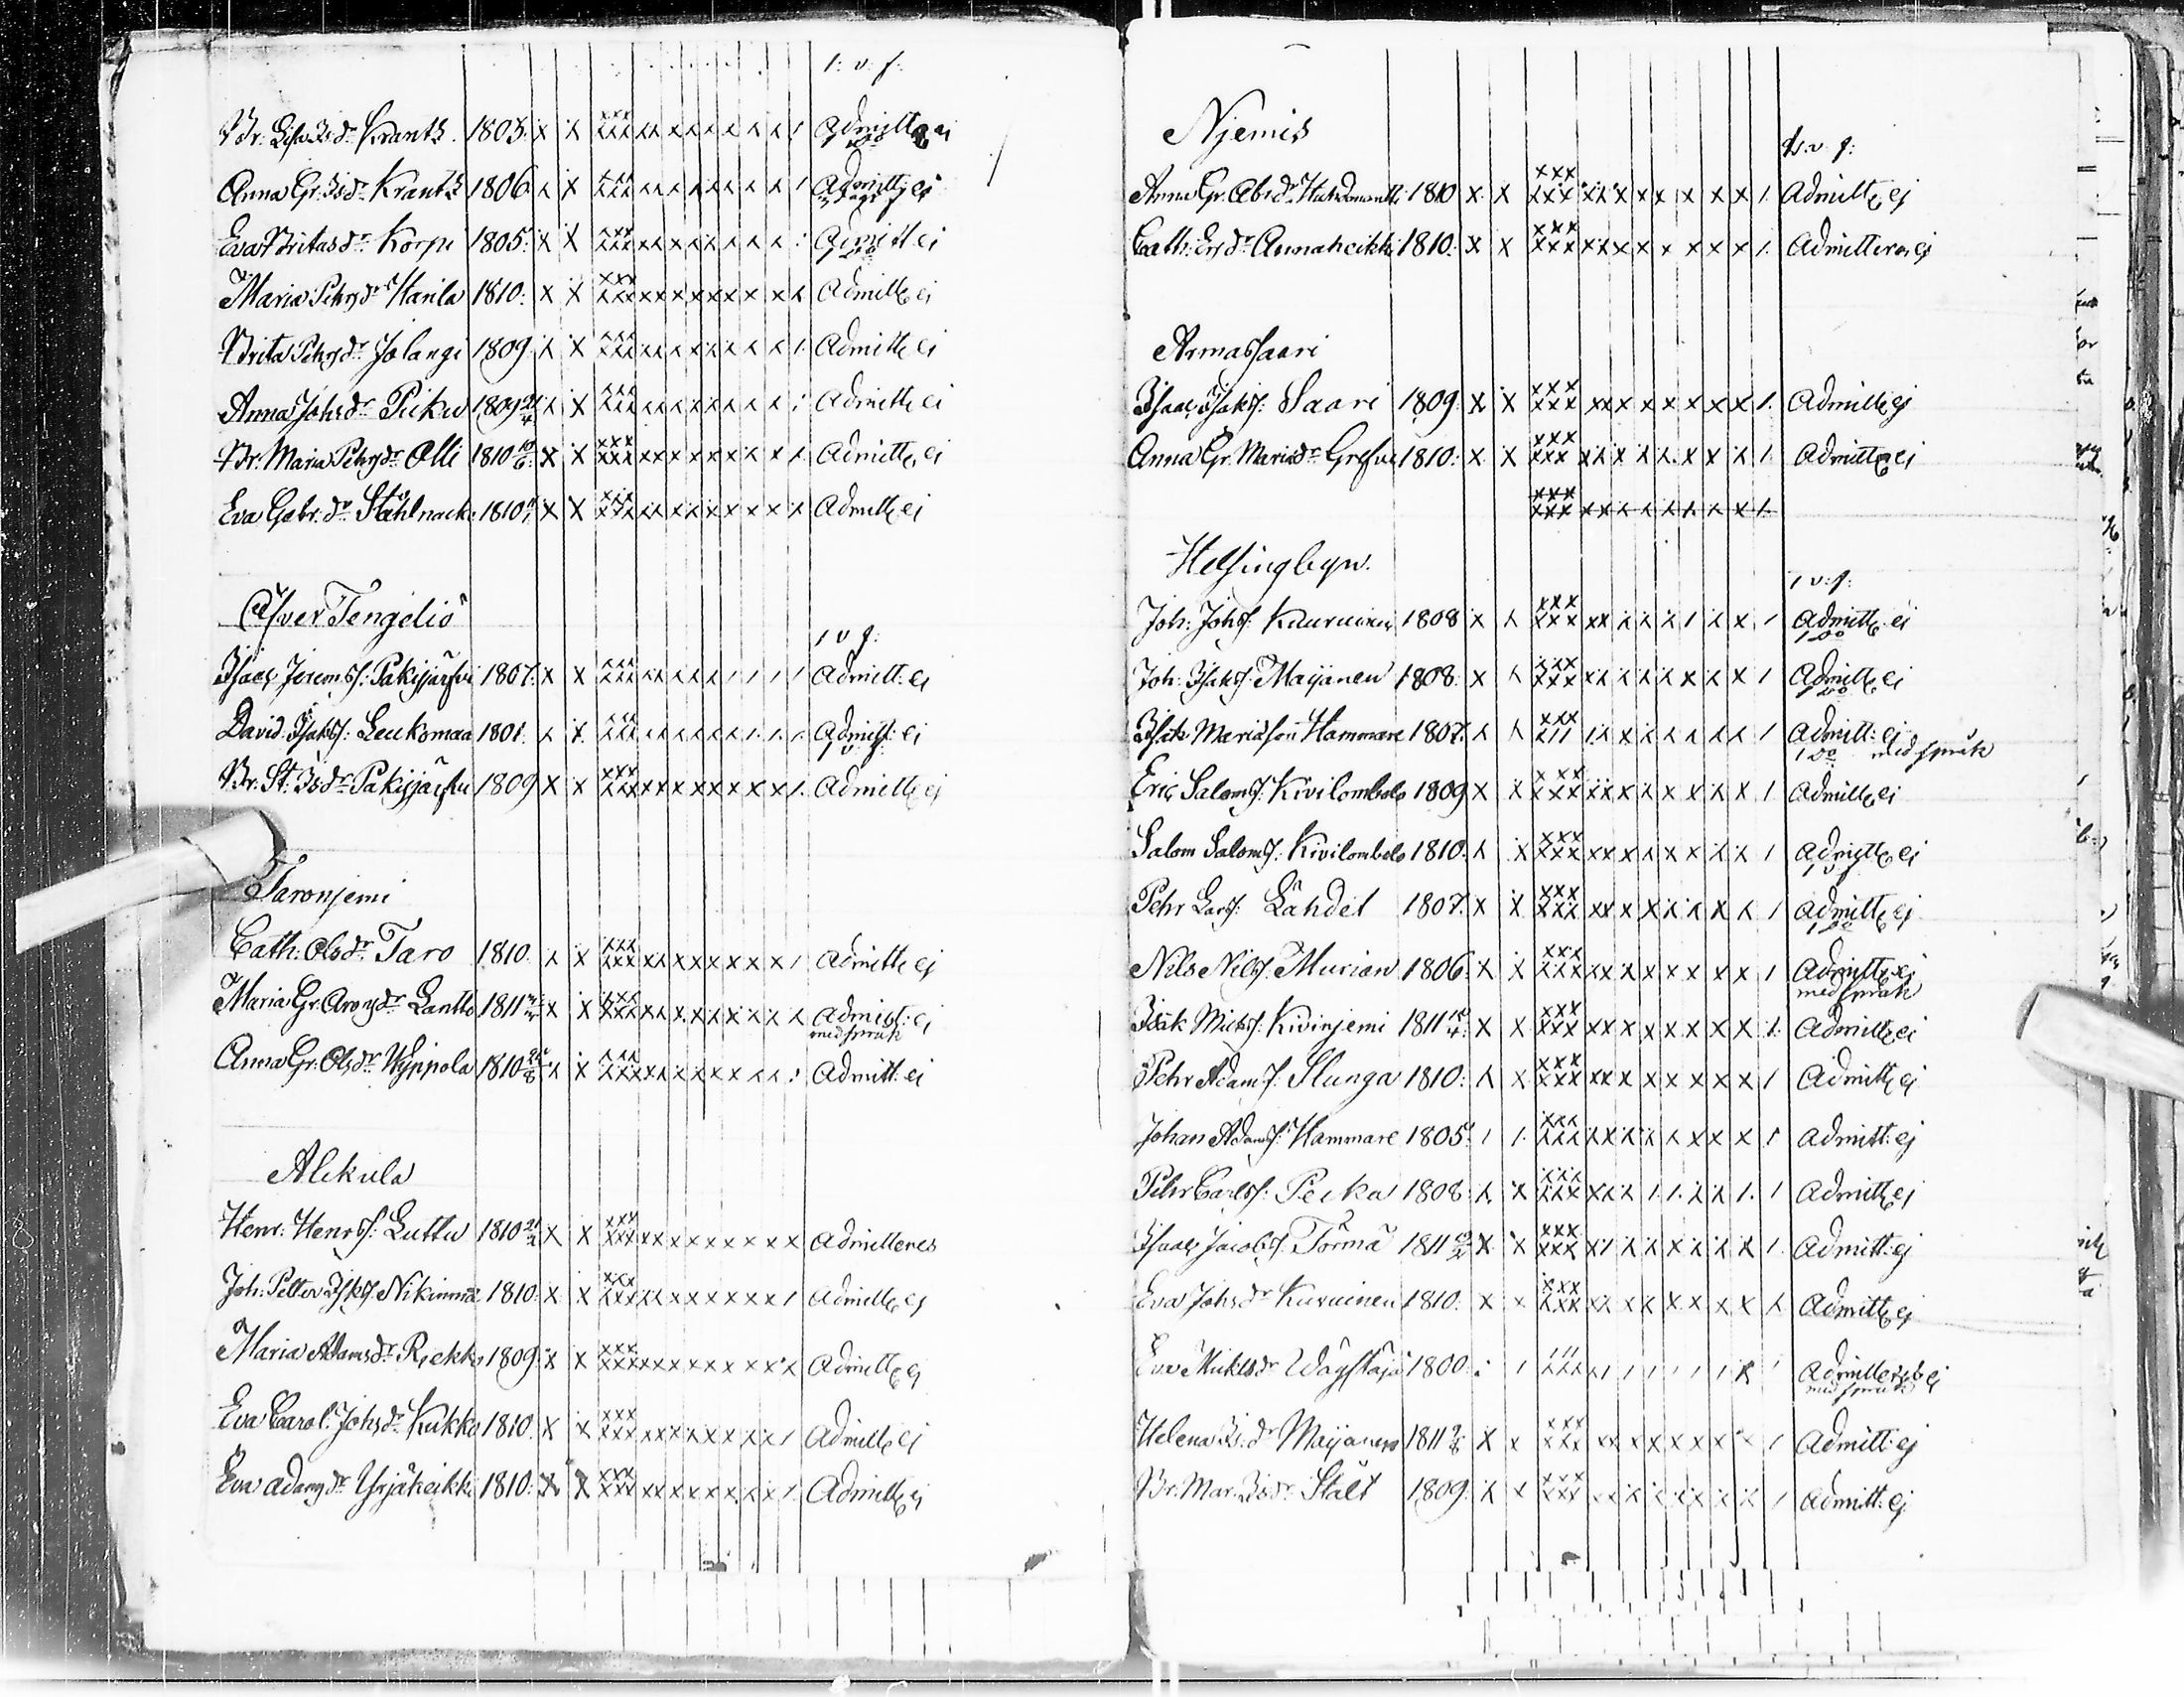 1: v: f:
Br: Lisa Isdr Krantz. 1803. x x xxx xxx xx x x x x x x x 1 Admitt ej
Anna Gr: Isdr Krantz 1806 x x xxx xxx xx x x x x x x x 1 Admitt ej
Eva Britasdr Korpi 1805: x x xxx xxx xx x x x x x x x Admitt ej
Maria Pehrsdr Harila 1810: x x xxx xxx xx x x x x x x x x Admitt ej
Brita Pehrsdr Jolangi 1809 x x xxx xxx xx x x x x x x x 1. Admitt ej
Anna Johsdr Piiku 1809 x x xxx xxx xx x x x x x x x Admitt ej
Br: Maria Pehrsdr Olli 1810 x x xxx xxx xx x x x x x x x x Admitt ej
Eva Gabr: dr Ståhlnacke 1810 x x xxx xxx xx x x x x x x x x Admitt ej
Öfver Tengeliö
1 v f:
Isaac Jerems: Pakisjärfvi 1807. x x xxx xxx xx x x x 1 1 1 1 Admitt: ej
David Isaks: Leuksmaa 1801. x x xxx xxx xx x x x x 1. 1. 1. Admitt: ej
1 v f:
Br: St: Isdr Pakisjärfvi 1809 x x xxx xxx xx x x x x x x x 1. Admitt ej
Taronjemi
Cath: Olsdr Taro 1810. x x xxx xxx xx x x x x x x x 1 Admitt ej
Maria Gr. Aronsdr Lantto 1811 x x xxx xxx xx x x x x x x x Admitt: ej
med språk
Anna Gr: Olsdr Wyppola 1810 x x xxx xxx xx x x x x x x x Admitt: ej
Alekula
Henr: Henrs: Luttu 1810 x x xxx xxx xx x x x x x x x Admitteres
Joh: Petter Isks: Nikinmä 1810: x x xxx xxx xx x x x x x x 1 Admitt ej
Maria Adamsdr Riekko 1809: x x xxx xxx xx x x x x x x x Admitt ej
Eva Carol: Johsdr Kukko 1810. x x xxx xxx xx x x x x x x 1 Admitt ej
Eva Adamsdr Yrjäheikki 1810: x x xxx xxx xx x x x x x x 1. Admitt ej
Njemis
1: v: f:
Anna Gr: Absdr 1810 x x xxx xxx xx x x x x x x 1. Admitt ej
Cath: Ersdr Annaheikki 1810: x x xxx xxx xx x x x x x x 1. Admitteras ej
Armassaari
Isaac Isaks: Saari 1809. x x xxx xxx xx x x x x x x 1. Admitt ej
Anna Gr. Mariædr Grefve 1810: x x xxx xxx xx x x x x x x 1. Admitt ej
xxx xxx xx x x x x x x 1.
Helsingbyn.
1 v: f:
Joh: Johs: Kauruinen 1808 x x xxx xxx xx x x x 1 x x 1 Admitt: ej
Joh: Isaks: Maijanen 1808. x x xxx xxx xx x x x x x x 1 Admitt ej
Isak Mariæson Hammare 1807. x x xxx x11 1x x x x x x x 1 Admitt: ej
med språk
Eric Saloms: Kivilombolo 1809 x x xxx xxx xx x x x x x x 1 Admitt ej
Salom Saloms: Kivilombolo 1810. x x xxx xxx xx x x x x x x 1 Admitt ej
Pehr Lars: Lähdet 1807. x x xxx xxx xx x x x x x x 1 Admitt ej
Nils Nils: Murian 1806. x x xxx xxx xx x x x x x x 1 Admitt ej
med språk
Isak Mickels: Kivinjemi 1811 x x xxx xxx xx x x x x x x 1. Admitt ej
Pehr Adams: Slunga 1810: x x xxx xxx xx x x x x x x 1 Admitt ej
Johan Adams: Hammare 1805. 1 1. xxx xxx xx x x x x x x 1 Admitt: ej
Pehr Carls: Pecka 1808. x x xxx xxx xx x 1. 1. x x 1. 1 Admitt ej
Isaac Jacobs: Törmä 1811 x x xxx xxx x1 x x x x x x 1. Admitt: ej
Eva Johsdr Kuruinen 1810. x x xxx xxx xx x x x x x x x Admitt ej
Eva Mickelsdr 1800. 1 xxx x1 1 1 1 1 1 x 1 Admitteras ej
med språk
Helena Is: dr Maijanen 1811 x x xxx xxx xx x x x x x x 1 Admitt: ej
Br: Mar: Isdr Stålt 1809. x x xxx xxx xx x x x x x x 1 Admitt: ej